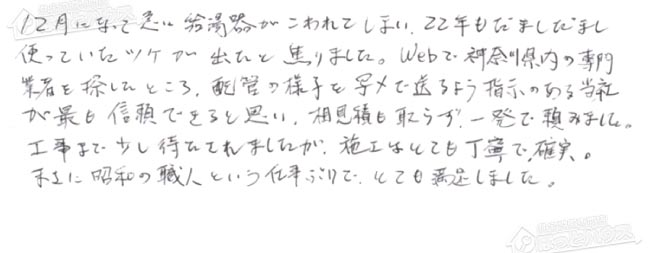 12月になって急に給湯器がこわれてしまい、22年もだましだまし
使っていたツケが出たと焦りました。Webで神奈川県内の専門
業者を探したところ、配管の様子を写メで送るよう指示のある当社
が最も信頼できると思い、相見積も取らず、一発で頼みました。
工事まで少し待たされましたが、施工はとても丁寧で確実。
まさに昭和の職人という仕事ぶりで、とても満足しました。